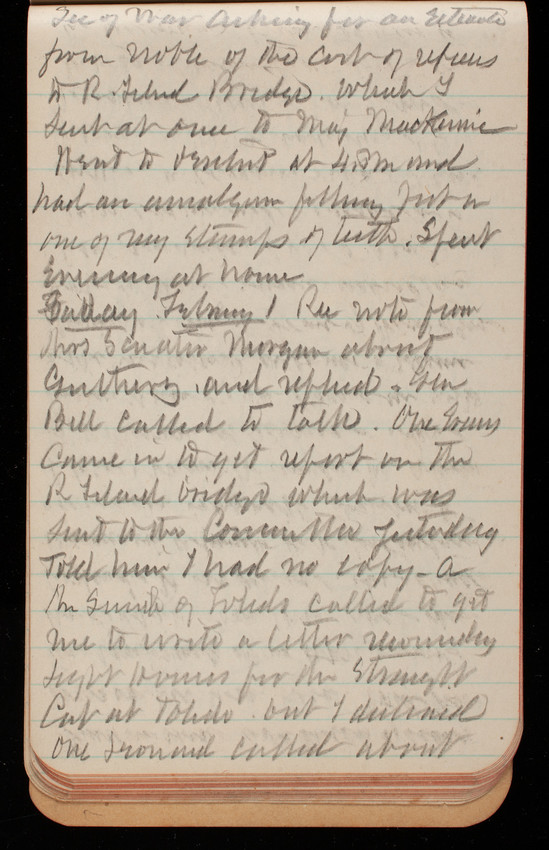 Sec of War asking for an Estimate
from Noble of the cost of repairs
to R. Island Bridge. Which I
sent at once to Maj MacKenzie
Went to dentist at 4 P.M. and
had an amalgam filling put in
one of my stumps of teeth. Spent
Evening at home
Friday February 1 Rec note from
Mrs Senator Morgan about
and replied. Gen
Bell called to talk. One Evans
came in to get report on the
R Island bridge which was
sent to the Committee yesterday
Told him I had no copy - A
Mr Smith of Toledo called to get
me to write a letter recommending
light houses for the Straight
Cut at Toledo but I declined
One called about